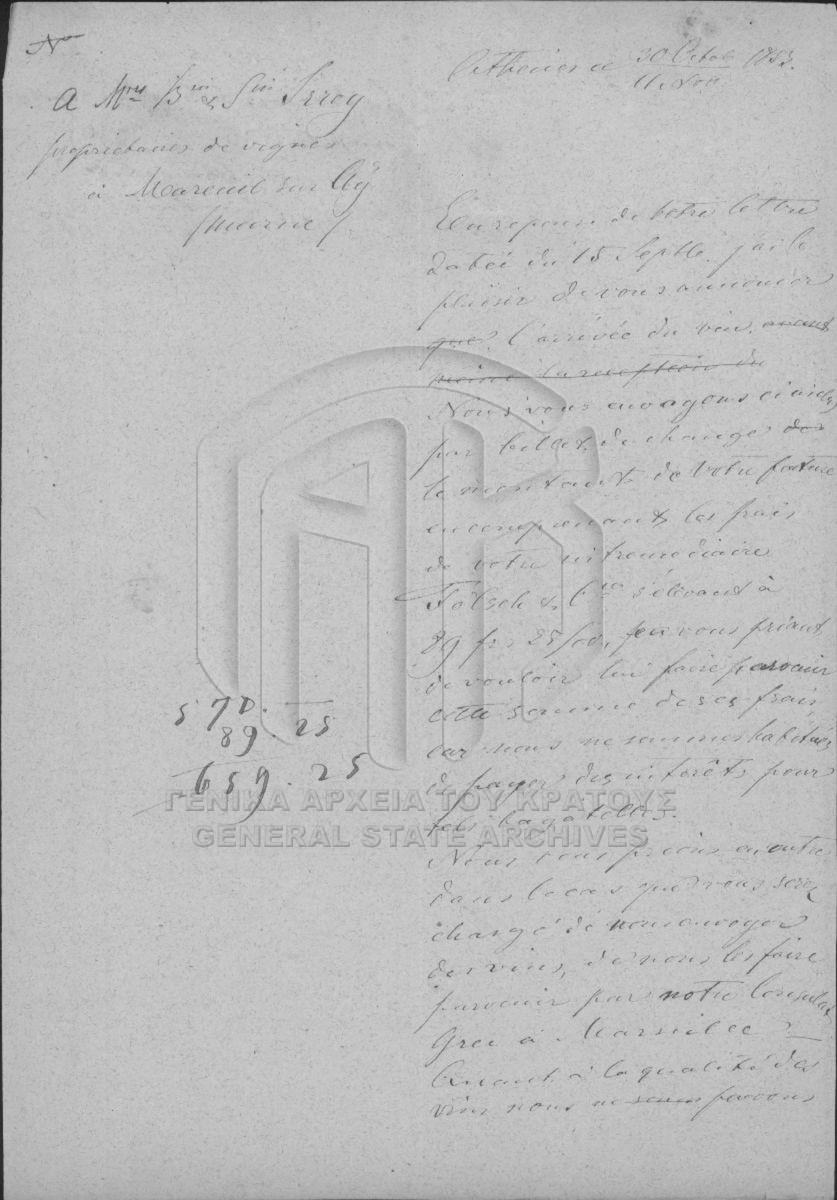 No
Athènes ce 30 Octob / 11 Nov 1853.
A Mrs Bin & Sin Irroy
propriétaires de vignes
à Mareuil sur Aÿ
(marne)
En reponse de votre lettre
datée du 15 Septbe. j'ai le
plaisir de vous annoncer
que l'arrivée du vin. avant
meme la reception du
Nous vous envoyons ci aidés
par billet de change de
le montant de votre facture
en comprenant les frais
de votre intremediaire
Fölsch & Cie s'élevant à
89 frs 25/00, en vous priant
de vouloir lui faire parvenir
cette somme de ses frais,
car nous ne sommes habitués
de payer des intérêts pour
tels bagatelles.
Nous vous prions en outre
dans le cas que vous serez
chargé de nous envoyer
des vins, de nous les faire
parvenir par notre Consulat
Grec à Marseille
Quant à la qualité des
vins nous ne pouvons
570. —
89. 25
659. 25
ΓΕΝΙΚΑ ΑΡΧΕΙΑ ΤΟΥ ΚΡΑΤΟΥΣ
GENERAL STATE ARCHIVES